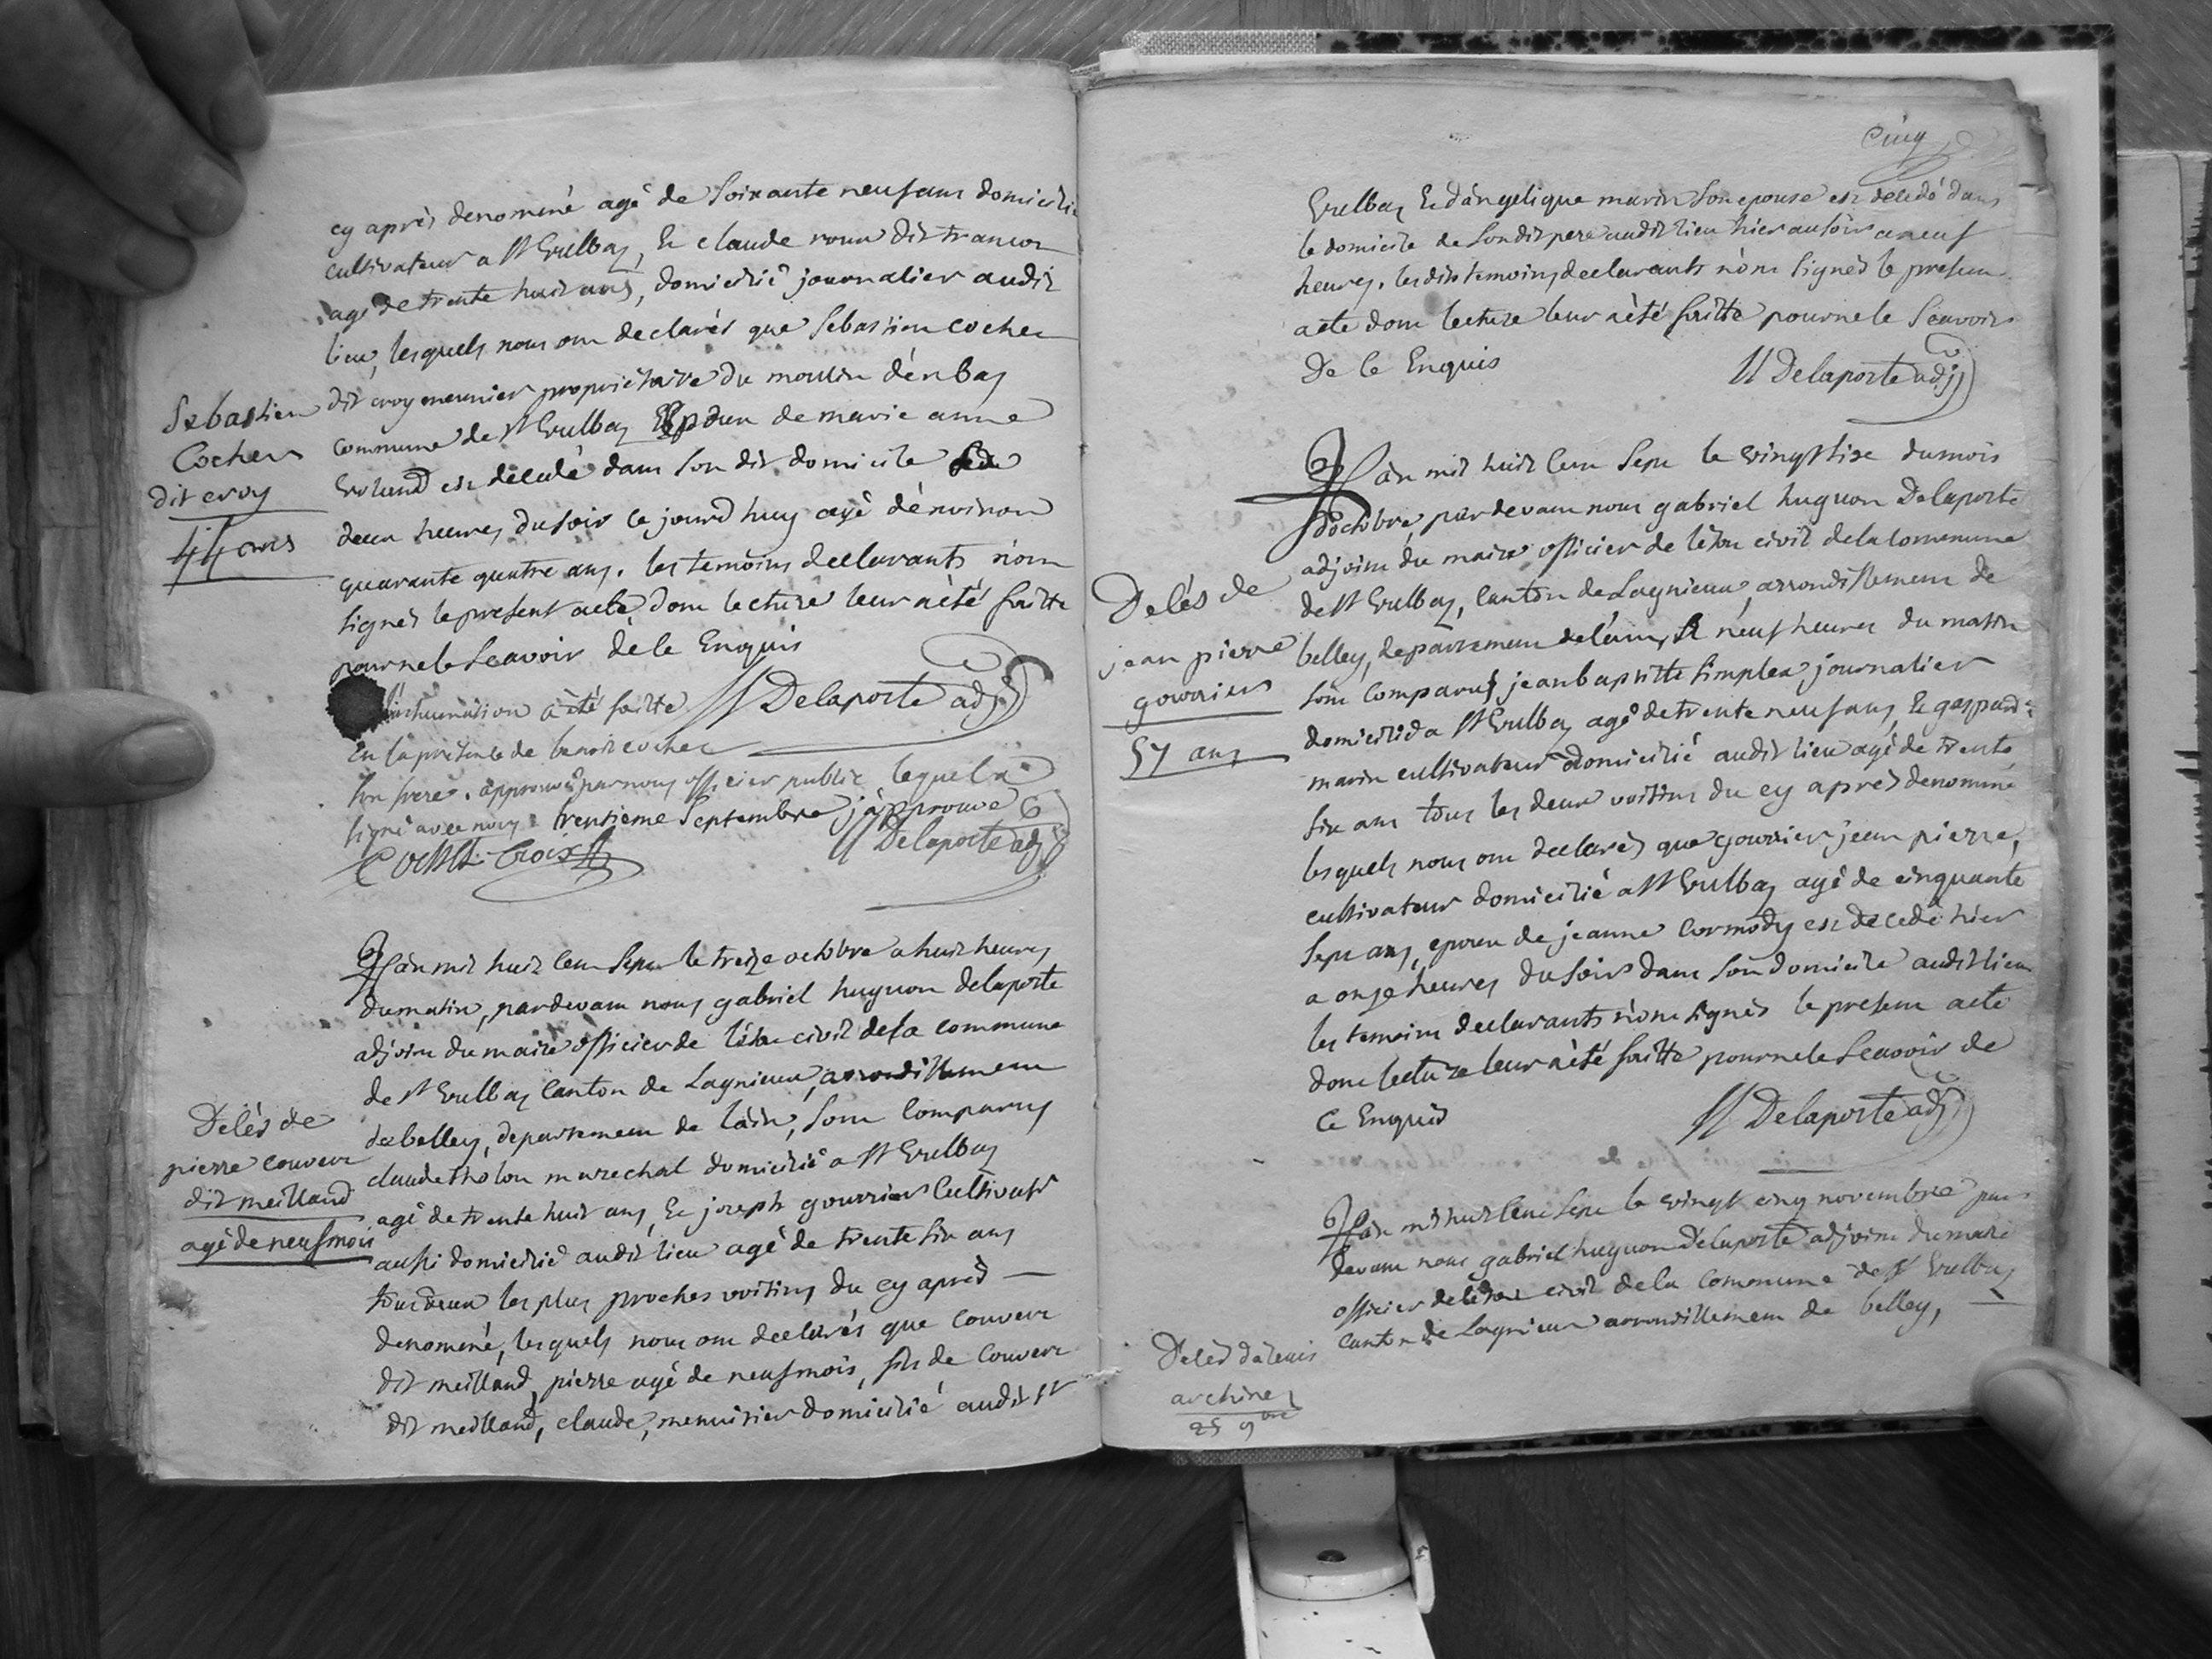 cy après denomné agé de Soixante neuf ans domicilié
cultivateur a St Vulbas, Et claude roux dit francon
agé de trente huit ans, domicilié journalier audit
lieu, lesquels nous ont declarés que Sebastien cocher
dit croy meunier propriétaire du moulin d'en bas
commune de St Vulbas Epoux de marie anne
est décédé dans son dit domicile
deux heures du soir ce jourd huy agé d'environ
quarante quatre ans. les temoins declarants n'ont
signés le present acte dont lecture leur a été faitte
pour ne le Scavoir de ce Enquis
Sebastien
Cocher
dit croy
44 ans
l'inhumation a été faitte
Delaporte adj
En la présence de benoit cocher
son frere. approuvé par nous officier public lequel a
signé avec nous trentieme Septembre j'approuve
Delaporte adj
L'an mil huit cent Sept le treize octobre a huit heures
du matin, par devant nous gabriel huguon delaporte
adjoint du maire officier de l'état civil de la commune
de St Vulbas Canton de Lagnieux, arrondissement
de belley, departement de l'ain, sont Comparus
claude tholon marechal domicilié a St Vulbas
agé de trente huit ans, Et joseph gourrier Cultivatr
aussi domicilié audit lieu agé de trente six ans
tous deux les plus proches voisins du cy après
denomné, lesquels nous ont declarés que Couvert
dit meilland, pierre agé de neuf mois, fils de Couvert
dit meilland, claude, menuisier domicilié audit St
Délès de
pierre couvert
dit meilland
agé de neuf mois
Cinq
Vulbas Et d'angelique marin Son epouse est décédé dans
le domicile de Son dit pere audit lieu hier au soir a neuf
heures. les dits temoins declarants n'ont Signés le present
acte dont lecture leur a été faitte pour ne le Scavoir
De ce Enquis
Delaporte adj
L'an mil huit cent Sept le vingt six du mois
d'octobre, par devant nous gabriel huguon Delaporte
adjoint du maire officier de l'état civil de la commune
de St Vulbas, Canton de Lagnieux, arrondissement de
belley, departement de l'ain, A neuf heures du matin
sont Comparus jean baptiste simplex journalier
domicilié a St Vulbas agé de trente neuf ans, Et gaspard
marin cultivateur domicilié audit lieu agé de trente
six ans tous les deux voisins du cy après denomné
lesquels nous ont declarés que gourrier jean pierre,
cultivateur domicilié a St Vulbas agé de cinquante
Sept ans, epoux de jeanne Cormody est décédé hier
a onze heures du soir dans son domicile audit lieu
les temoins declarants n'ont signés le present acte
dont lecture leur a été faitte pour ne le Scavoir de
Ce Enquis
Delaporte adj
Delès de
jean pierre
gourrier
57 ans
L'an mil huit cent Sept le vingt cinq novembre par
devant nous gabriel huguon Delaporte adjoint du maire
officier de l'état civil de la Commune de St Vulbas
Canton de Lagnieux arrondissement de belley,
Delès
archine
25 9bre